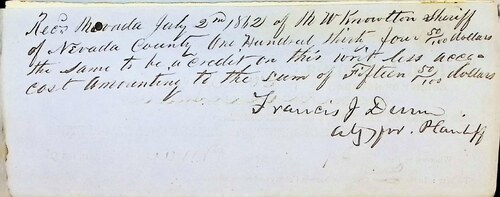 Recd Nevada July 2nd 1862 of M W Knowlton Sheriff
of Nevada County One Hundred thirty four 50/100 dollars
the same to be a credit on this writ less accr
cost amounting to the sum of Fifteen 50/100 dollars
Francis J Dunn
atty for Plantiff